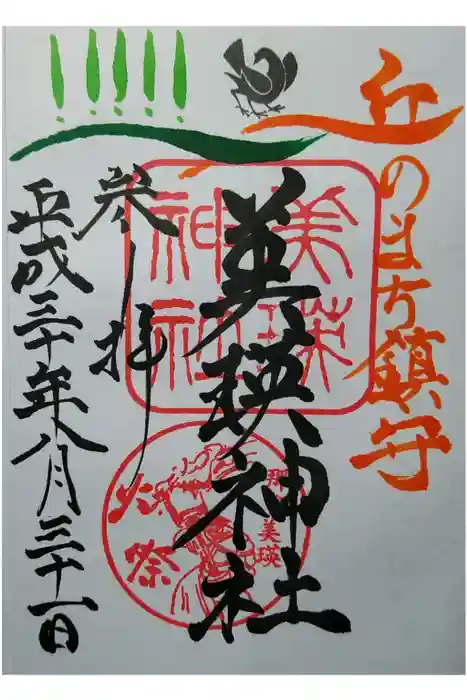 丘のまち鎮守
美瑛神社
参拝
平成三十年八月三十一日
美瑛
神社
那智
美瑛
火祭